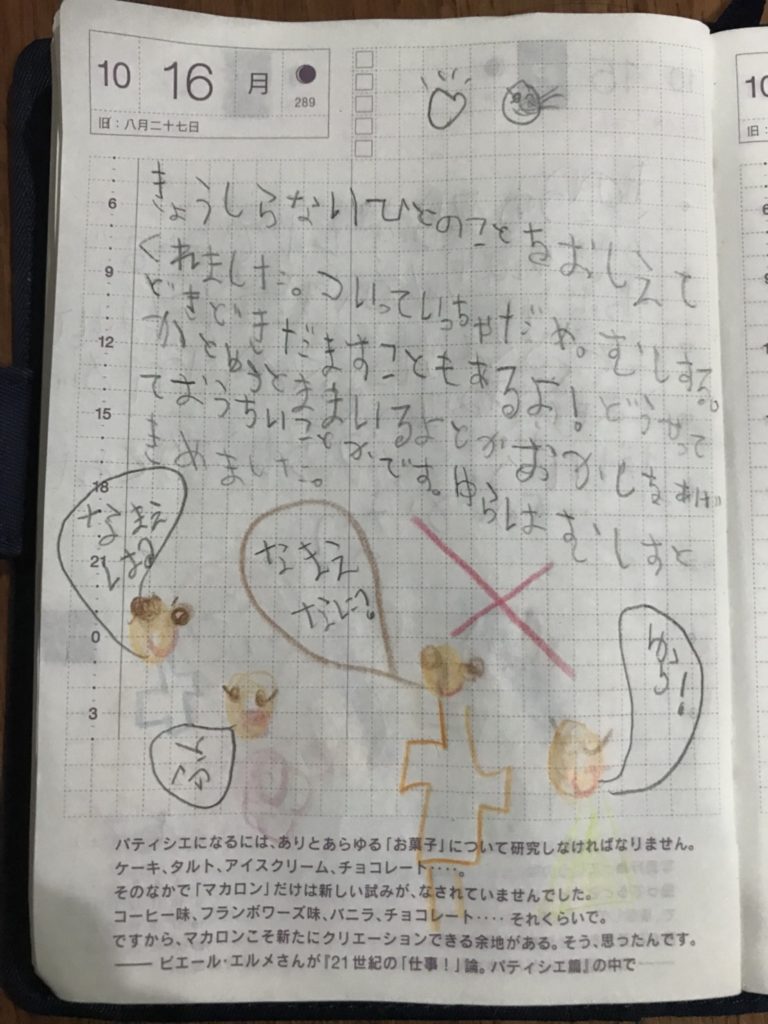 10 16 月
289
旧：八月二十七日
きょうしらないひとのことをおしえて
くれました。ついていっちゃだめ。むしする。
どきどきだますこともあるよ！どうやって
かとゆうとままいるよとかおかしをあげ
ておうちいことかです。ゆらはむしすと
きめました。
6
9
12
15
18
21
0
3
なまえ
なまえ
なに?
ゆら！
うん
パティシエになるには、ありとあらゆる「お菓子」について研究しなければなりません。
ケーキ、タルト、アイスクリーム、チョコレート‥‥。
そのなかで「マカロン」だけは新しい試みが、なされていませんでした。
コーヒー味、フランボワーズ味、バニラ、チョコレート‥‥それくらいで。
ですから、マカロンこそ新たにクリエーションできる余地がある。そう、思ったんです。
―― ピエール・エルメさんが『21世紀の「仕事！」論。パティシエ篇』の中で